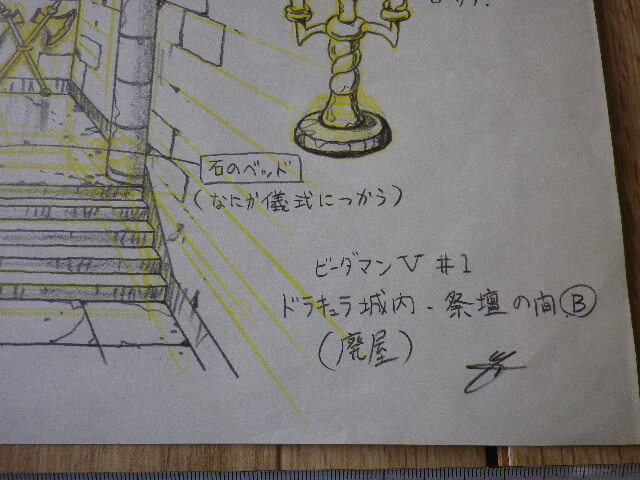 石のベッド
(なにか儀式につかう)
ビーダマンV #1
ドラキュラ城内-祭壇の間 Ⓑ
(廃屋)